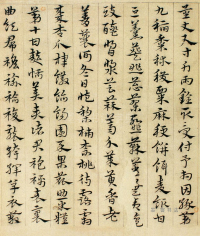 量丈尺寸斤兩銓取受付予相因緣第
九稻黍秫稷粟麻秔餅餌麥飯甘
豆羹葵韭蔥蓼蘇薑
豉醯醬漿芸蒜薺芥茱萸香老
菁蘘荷冬日藏梨柿柰桃待露霜
棗杏瓜棣饊飴餳園菜果蓏助米糧
第十甘麩恬美奏諸君袍襦表裏
曲領帬襜褕袷複